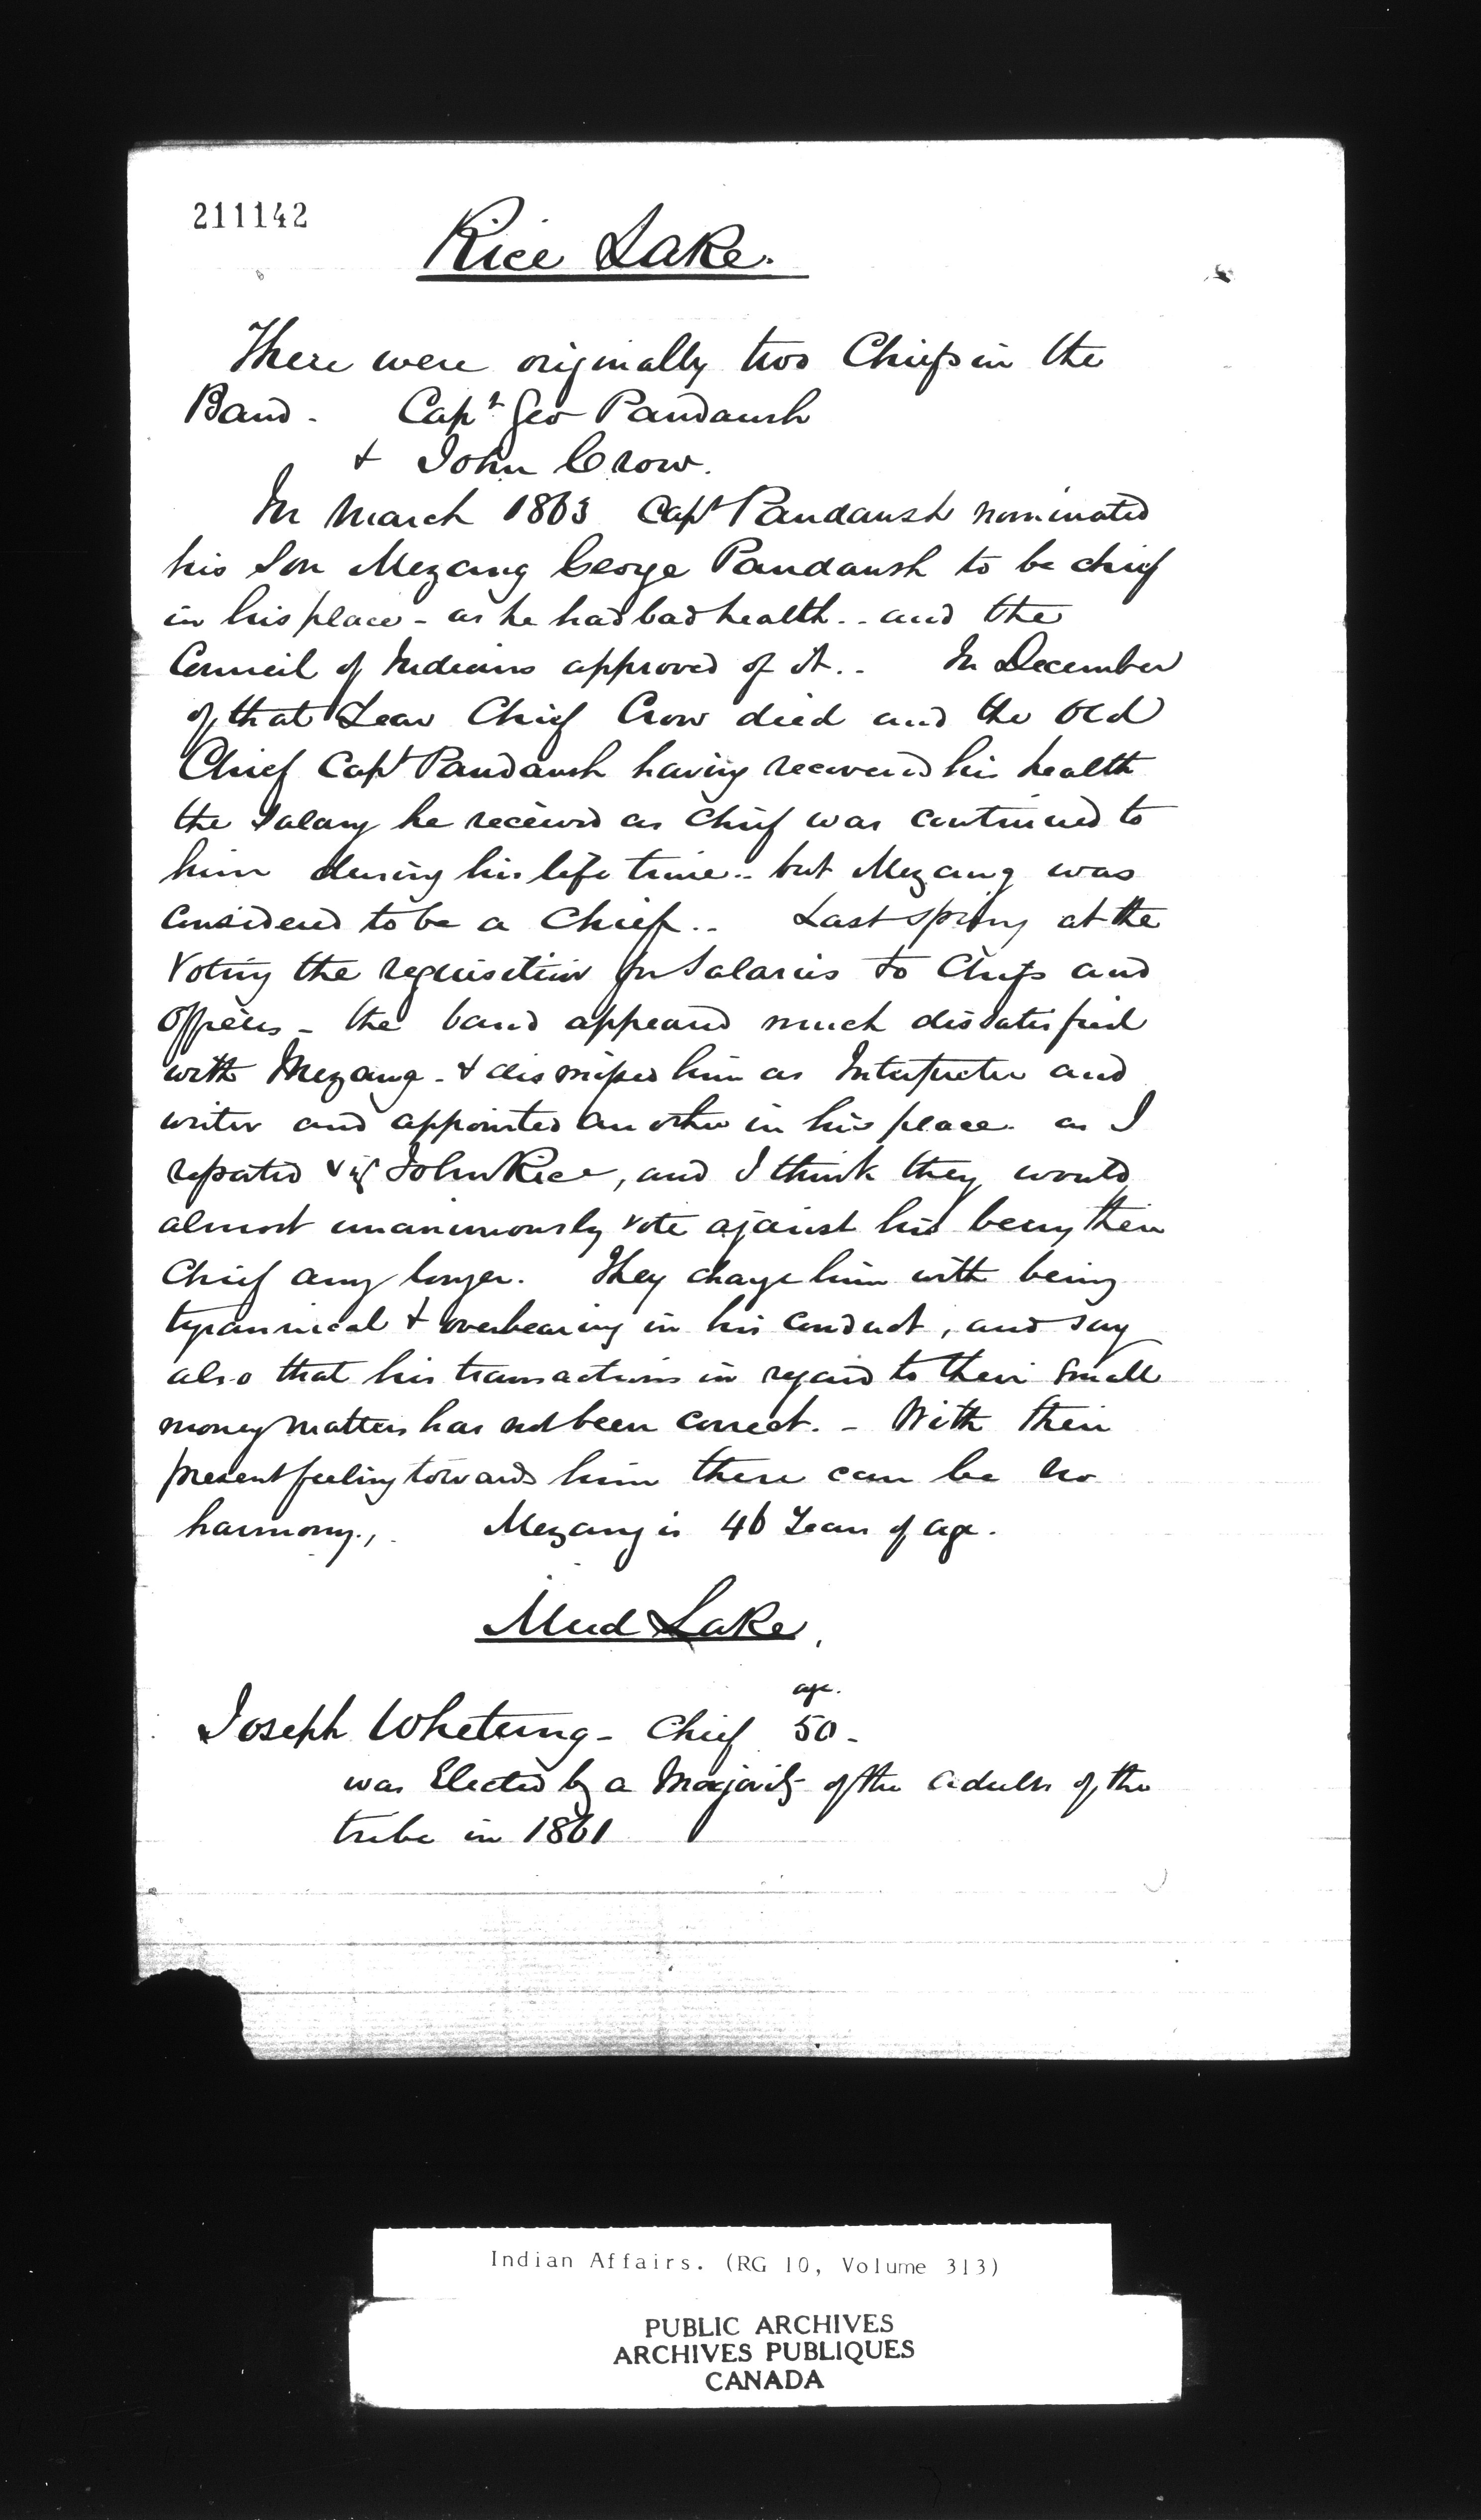 211142
Rice Lake.
There were originally two Chiefs in the
Band - Capt Geo Paudaush
& John Crow.
In March 1863 Capt Paudaush nominated
his Son Mezang George Paudaush to be chief
in his place - as he had bad health .. and the
Council of Indians approved of it .. In December
of that Year Chief Crow died and the old
Chief Capt Paudaush having recovered his health
the Salary he received as Chief was continued to
him during his life time .. but Mezang was
considered to be a Chief .. Last spring at the
Voting the requisition for Salaries to Chiefs and
officers - the band appeared much dissatisfied
with Mezang - & dismissed him as Interpreter and
writer and appointed another in his place. as I
reported viz John Rice, and I think they would
almost unanimously vote against his being their
Chief any longer. They charge him with being
tyrannical & overbearing in his conduct, and say
also that his transactions in regard to their small
money matters has not been correct. - With their
present feeling towards him there can be no
harmony., Mezang is 46 Years of age.
Mud Lake,
age.
Joseph Whetung - Chief 50 -
was Elected by a Majority of the adults of the
tribe in 1861
Indian Affairs. (RG 10, Volume 313)
PUBLIC ARCHIVES
ARCHIVES PUBLIQUES
CANADA